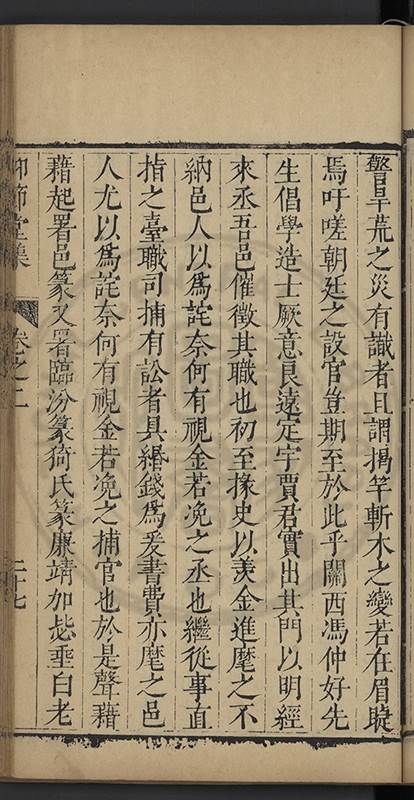 警旱荒之災有識者且謂揭竿斬木之變若在眉睫
焉吁嗟朝廷之設官豈期至於此乎關西馮仲好先
生倡學造士厥意良遠定宇賈君實出其門以明經
來丞吾邑催徵其職也初至掾史以羨金進麾之不
納邑人以為詫奈何有視金若凂之丞也繼從事直
指之臺職司捕有訟者具緡錢為爰書費亦麾之邑
人尤以為詫奈何有視金若凂之捕官也於是聲藉
藉起署邑篆又署臨汾篆猗氏篆廉靖加毖垂白老
仰節堂集 卷之二 二十七